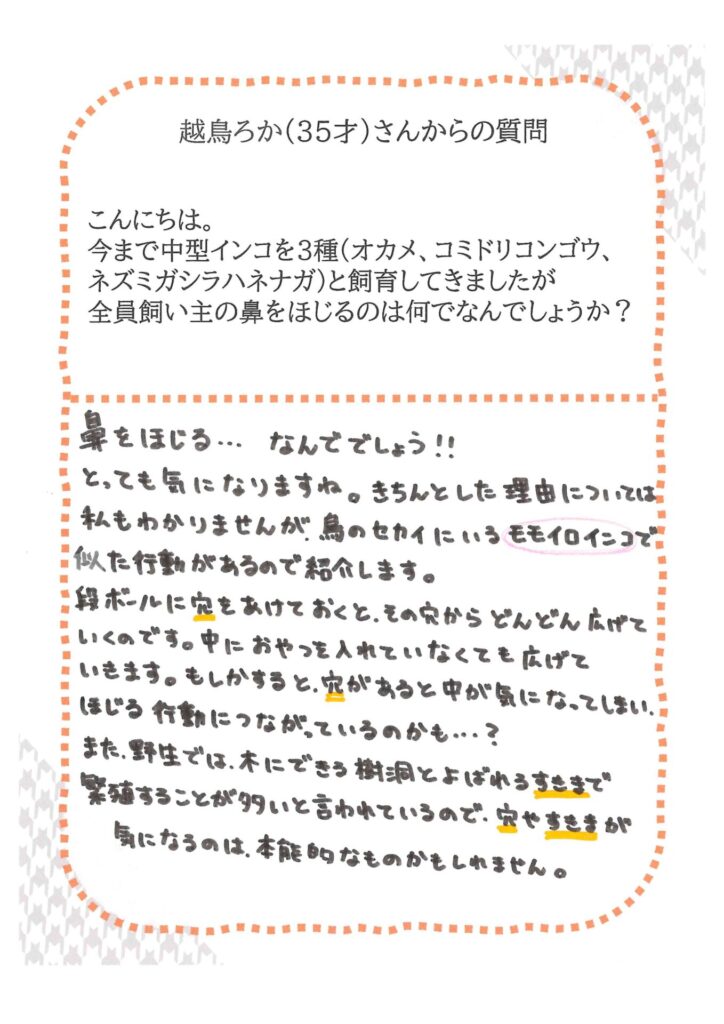 越鳥ろか（３５才）さんからの質問
こんにちは。
今まで中型インコを３種（オカメ、コミドリコンゴウ、
ネズミガシラハネナガ）と飼育してきましたが
全員飼い主の鼻をほじるのは何でなんでしょうか？
鼻をほじる… なんででしょう!!
とっても気になりますね。きちんとした理由については
私もわかりませんが、鳥のセカイにいるモモイロインコで
似た行動があるので紹介します。
段ボールに穴をあけておくと、その穴からどんどん広げて
いくのです。中におやつを入れていなくても広げて
いきます。もしかすると、穴があると中が気になってしまい、
ほじる行動につながっているのかも…？
また、野生では、木にできる樹洞とよばれるすきまで
繁殖することが多いと言われているので、穴やすきまが
気になるのは、本能的なものかもしれません。